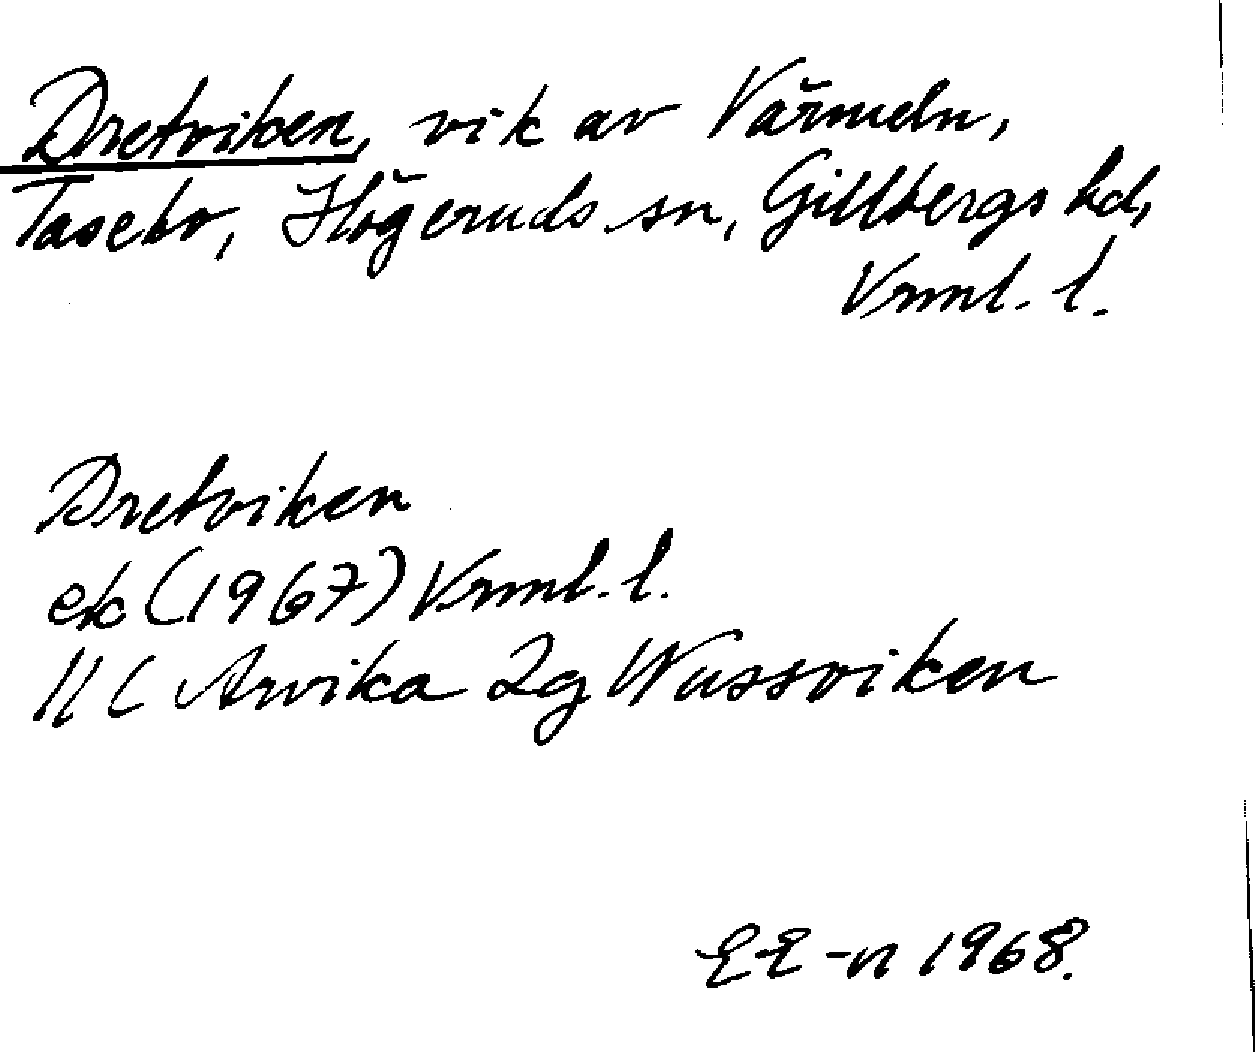 Dretviken, vik av Värmeln,
Tasebo, Högeruds sn, Gillbergs hd,
Vrml. l.
Dretviken
ek (1967) Vrml. l.
11 C Arvika 2g Wussviken
EE-n 1968.